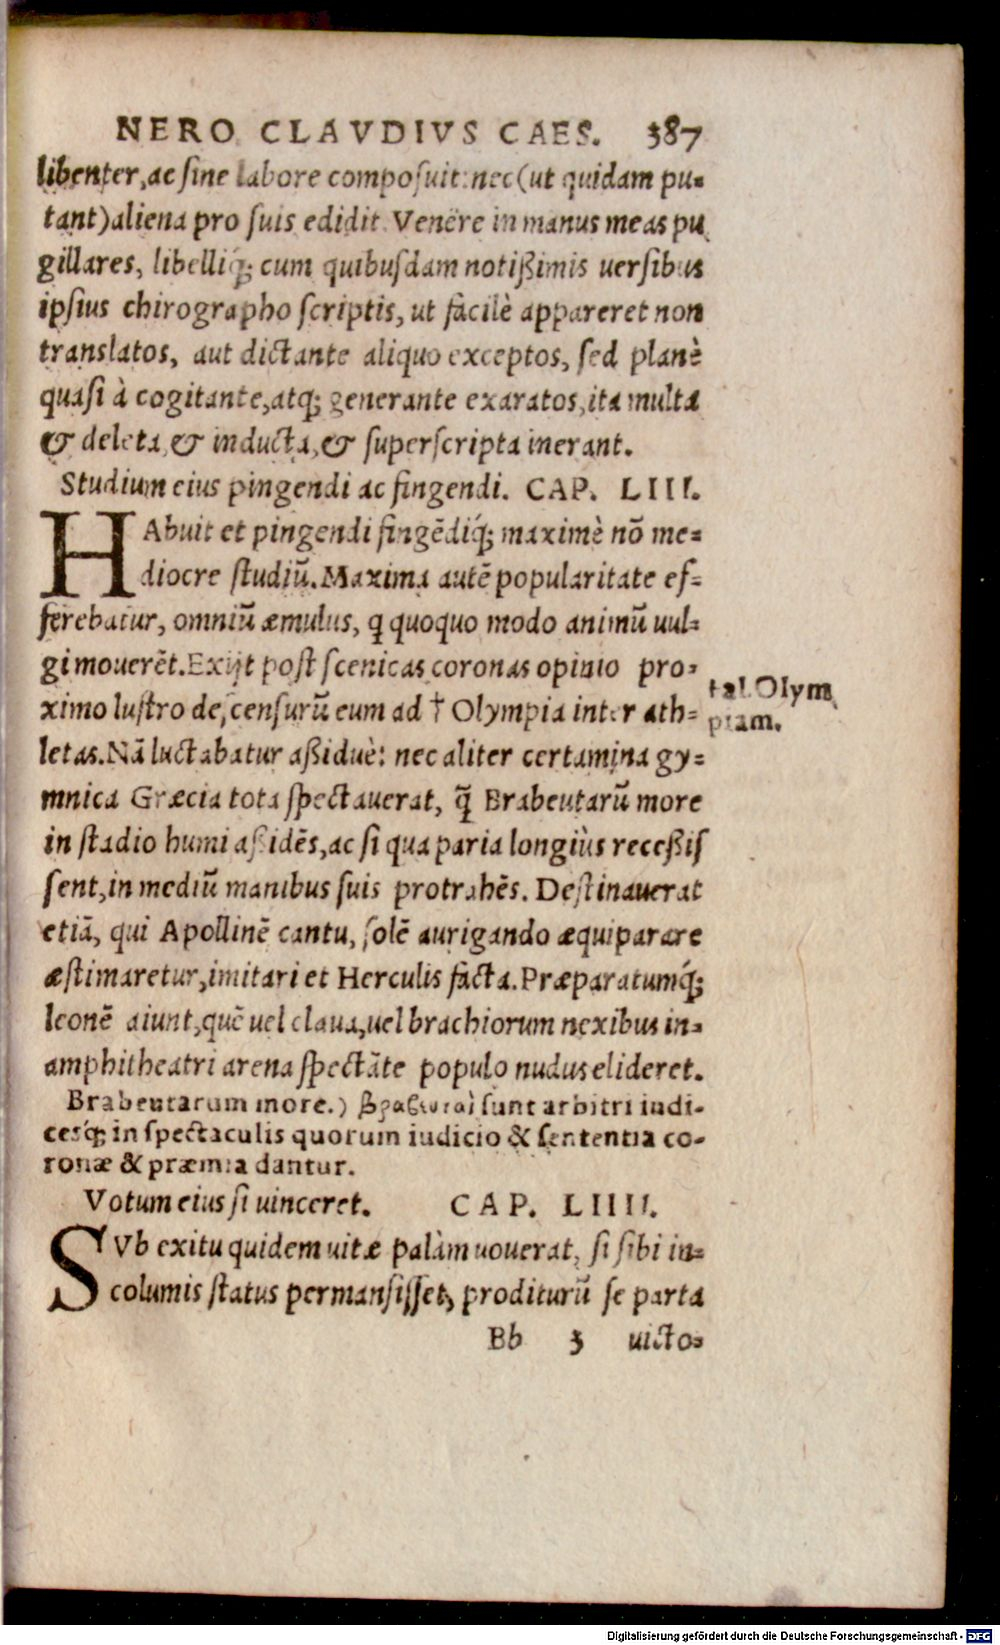 NERO CLAVDIVS CAES. 387
libenter, ac ſine labore compoſuit: nec (ut quidam pu-
tant) aliena pro ſuis edidit. Venēre in manus meas pu
gillares, libelliq́; cum quibuſdam notißimis uerſibus
ipſius chirographo ſcriptis, ut facilè appareret non
translatos, aut dictante aliquo exceptos, ſed planè
quaſi à cogitante, atq; generante exaratos, ita multa
& deleta, & inducta, & ſuperſcripta inerant.
Studium eius pingendi ac fingendi. CAP. LIII.
HAbuit et pingendi fingēdiq́; maximè nō me-
diocre ſtudiū. Maxima autē popularitate ef-
ferebatur, omniū æmulus, q quoquo modo animū uul-
gi mouerēt. Exijt poſt ſcenicas coronas opinio pro-
ximo luſtro deſcenſurū eum ad † Olympia inter ath-
†al. Olym
piam.
letas. Nā luctabatur aßiduè: nec aliter certamina gy-
mnica Græcia tota ſpectauerat, q̄ Brabeutarū more
in ſtadio humi aßidēs, ac ſi qua paria longiùs receßiſ
ſent, in mediū manibus ſuis protrahēs. Deſtinauerat
etiā, qui Apollinē cantu, ſolē aurigando æquiparare
æſtimaretur, imitari et Herculis facta. Præparatumq́;
leonē aiunt, quē uel claua, uel brachiorum nexibus in-
amphitheatri arena ſpectāte populo nudus elideret.
Brabeutarum more.) βραβευταὶ ſunt arbitri iudi-
cesq́; in ſpectaculis quorum iudicio & ſententia co-
ronæ & præmia dantur.
Votum eius ſi uinceret. CAP. LIIII.
SVb exitu quidem uitæ palàm uouerat, ſi ſibi in-
columis ſtatus permanſiſſet, proditurū ſe parta
Bb 3 uicto-
Digitalisierung gefördert durch die Deutsche Forschungsgemeinschaft - DFG